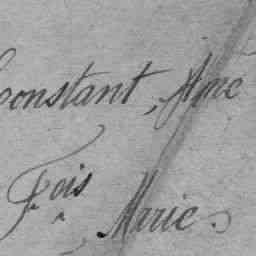 Constant, Amé
Fçois Marie.